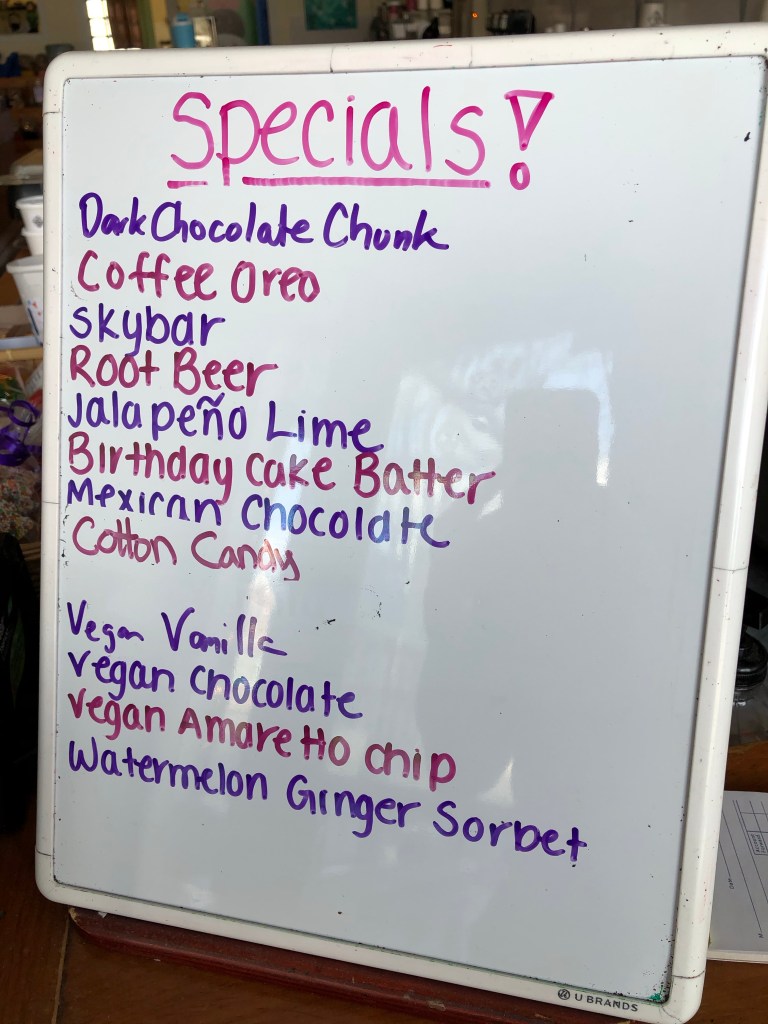 Specials!
Dark Chocolate Chunk
Coffee Oreo
skybar
Root Beer
Jalapeño Lime
Birthday cake Batter
Mexican Chocolate
Cotton Candy
Vegan Vanilla
vegan chocolate
vegan Amaretto chip
Watermelon Ginger Sorbet
U BRANDS